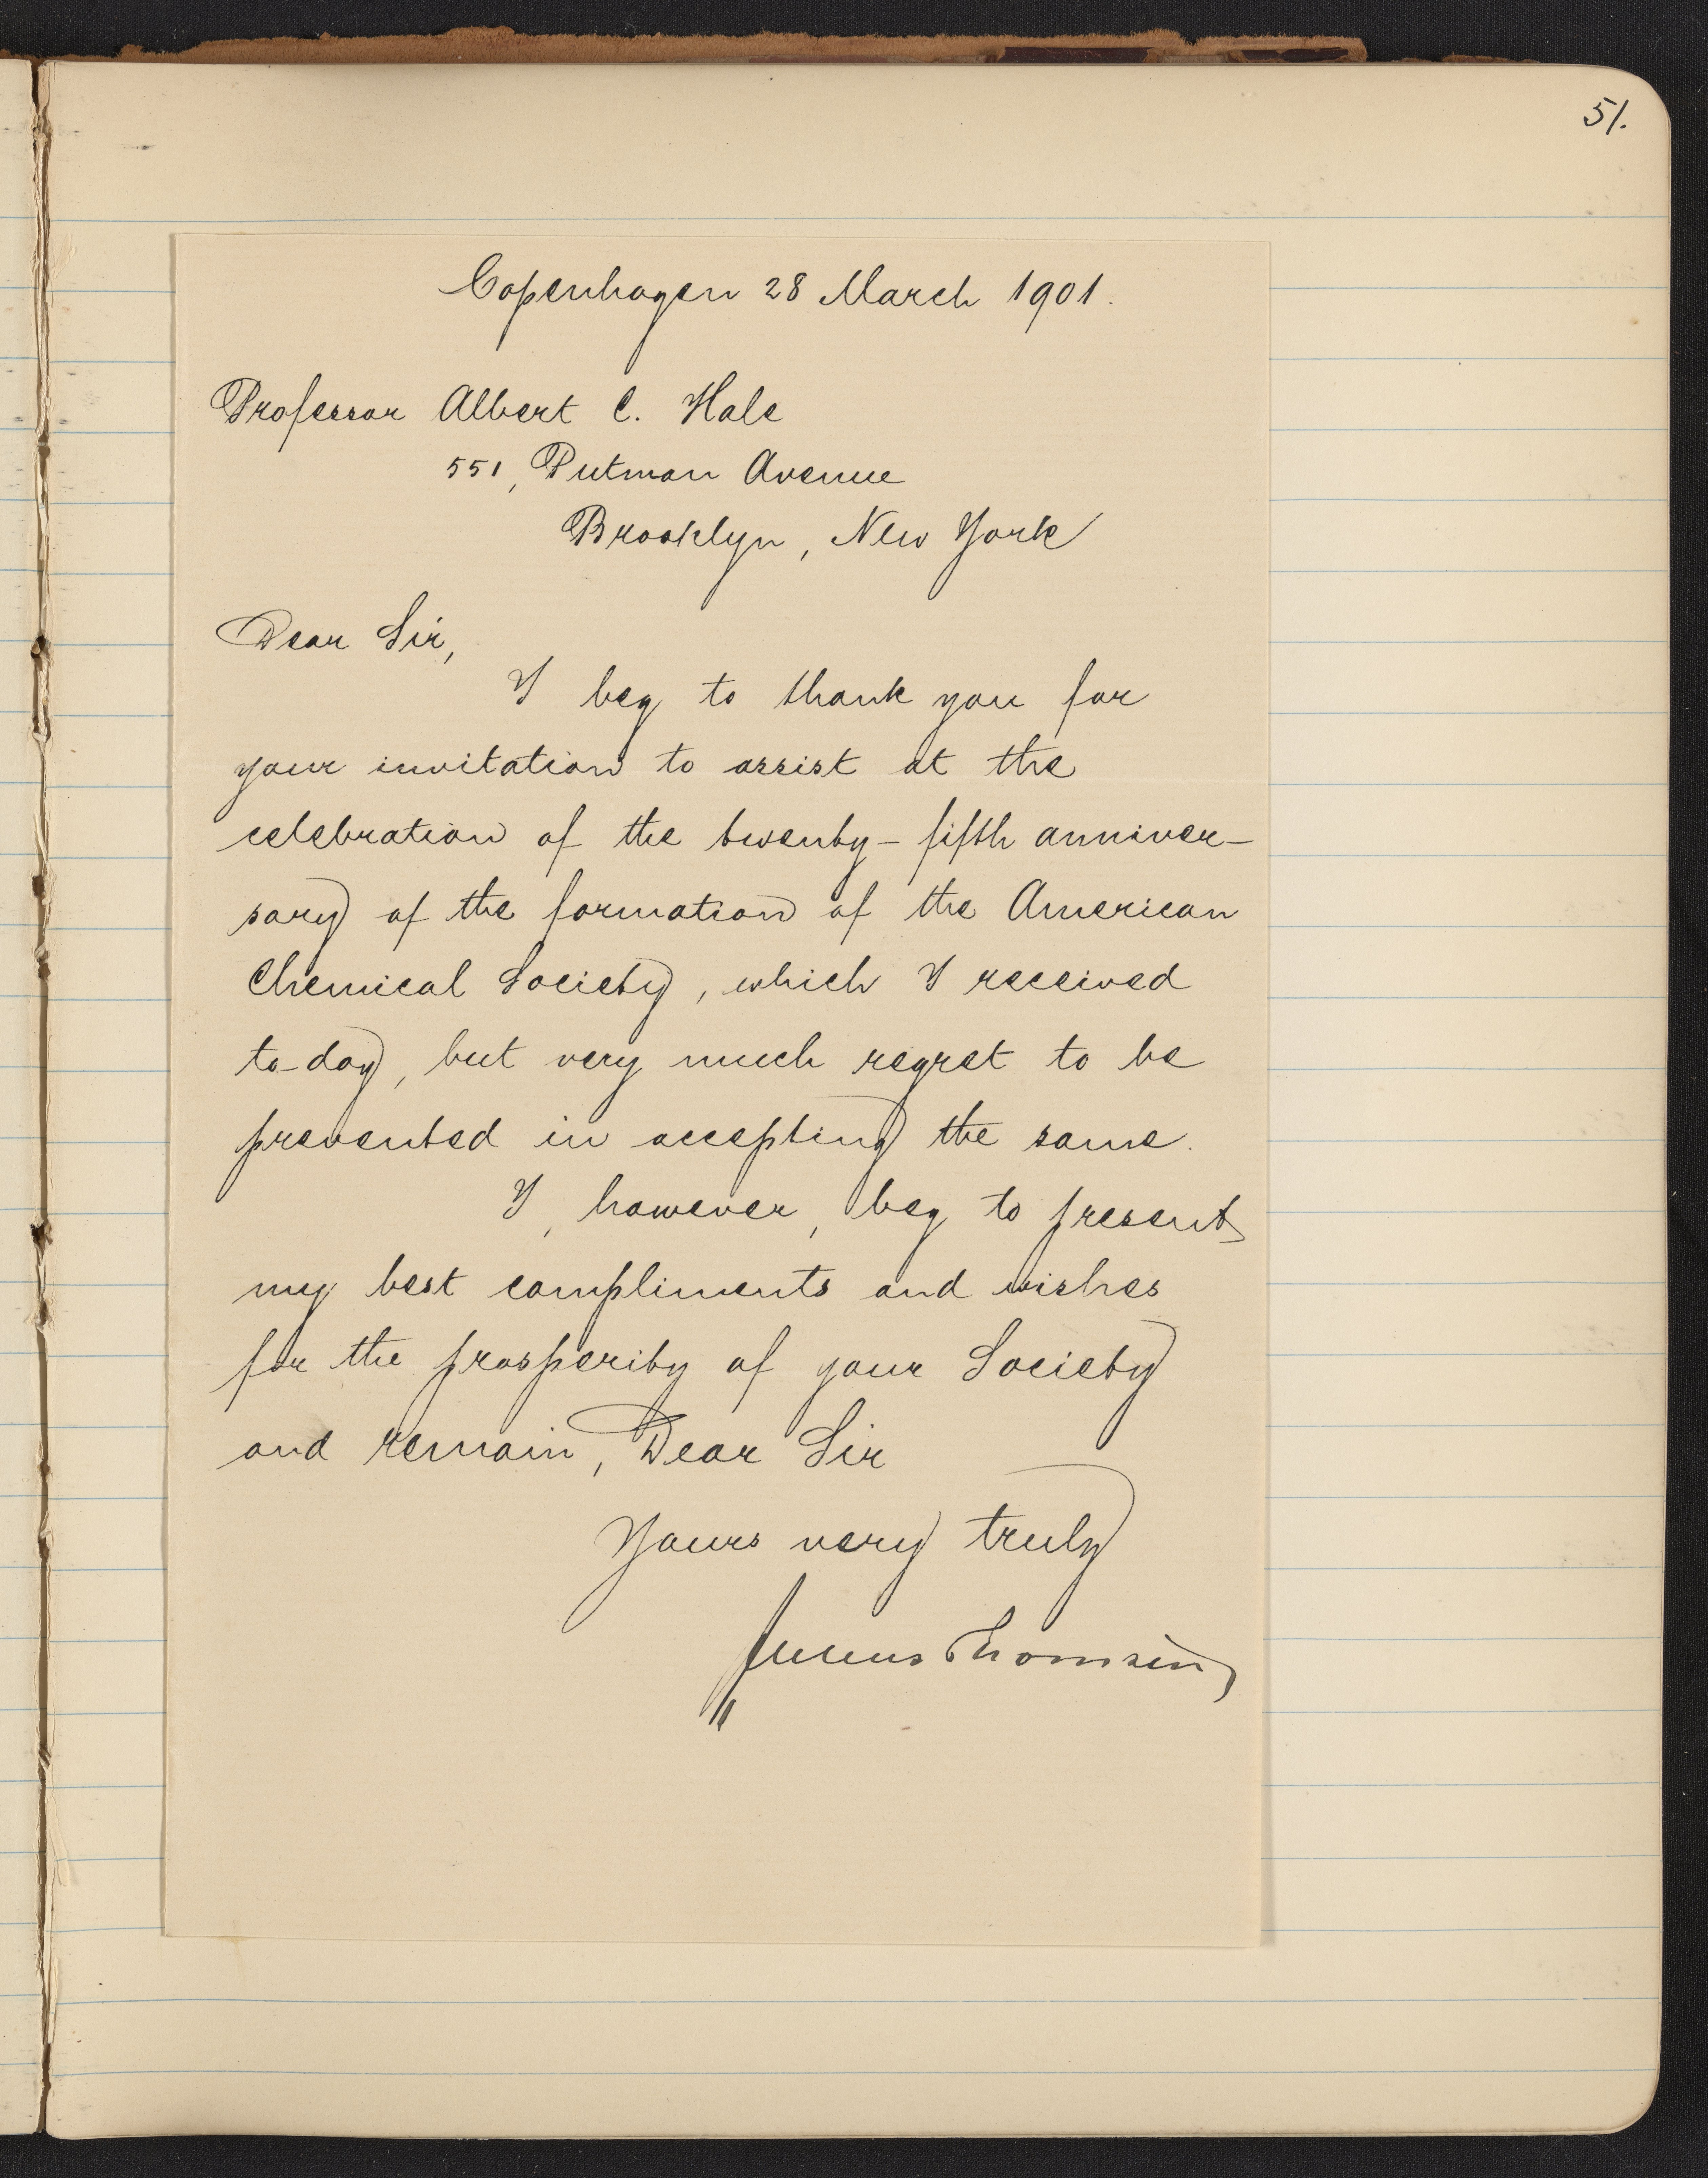 51.
Copenhagen 28 March 1901.
Professor Albert C. Hale
551, Putman Avenue
Brooklyn, New York
Dear Sir,
I beg to thank you for
your invitation to assist at the
celebration of the twenty-fifth anniver-
sary of the formation of the American
Chemical Society, which I received
to-day, but very much regret to be
prevented in accepting the same.
I, however, beg to present
my best compliments and wishes
for the prosperity of your Society
and remain, Dear Sir
Yours very truly
Julius Thomsen